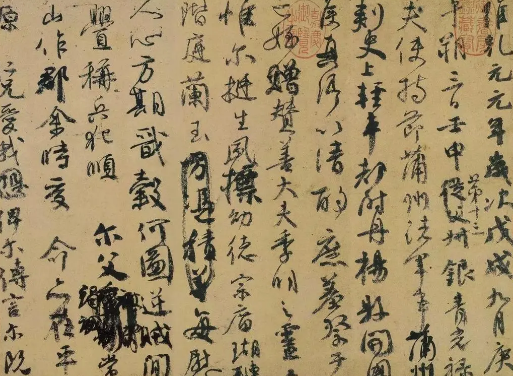 維乾元元年歲次戊戌九月庚
午朔三日壬申第十三從父叔銀青光祿
夫使持節蒲州諸軍事蒲州
刺史上輕車都尉丹楊縣開國
侯真卿以清酌庶羞祭于
亡姪贈贊善大夫季明之靈
惟爾挺生夙標幼德宗廟瑚璉
階庭蘭玉每慰
人心方期戩穀何圖逆賊閒
釁稱兵犯順 爾父竭誠常
山作郡余時受 命亦在平
原仁兄愛我俾爾傳言爾既